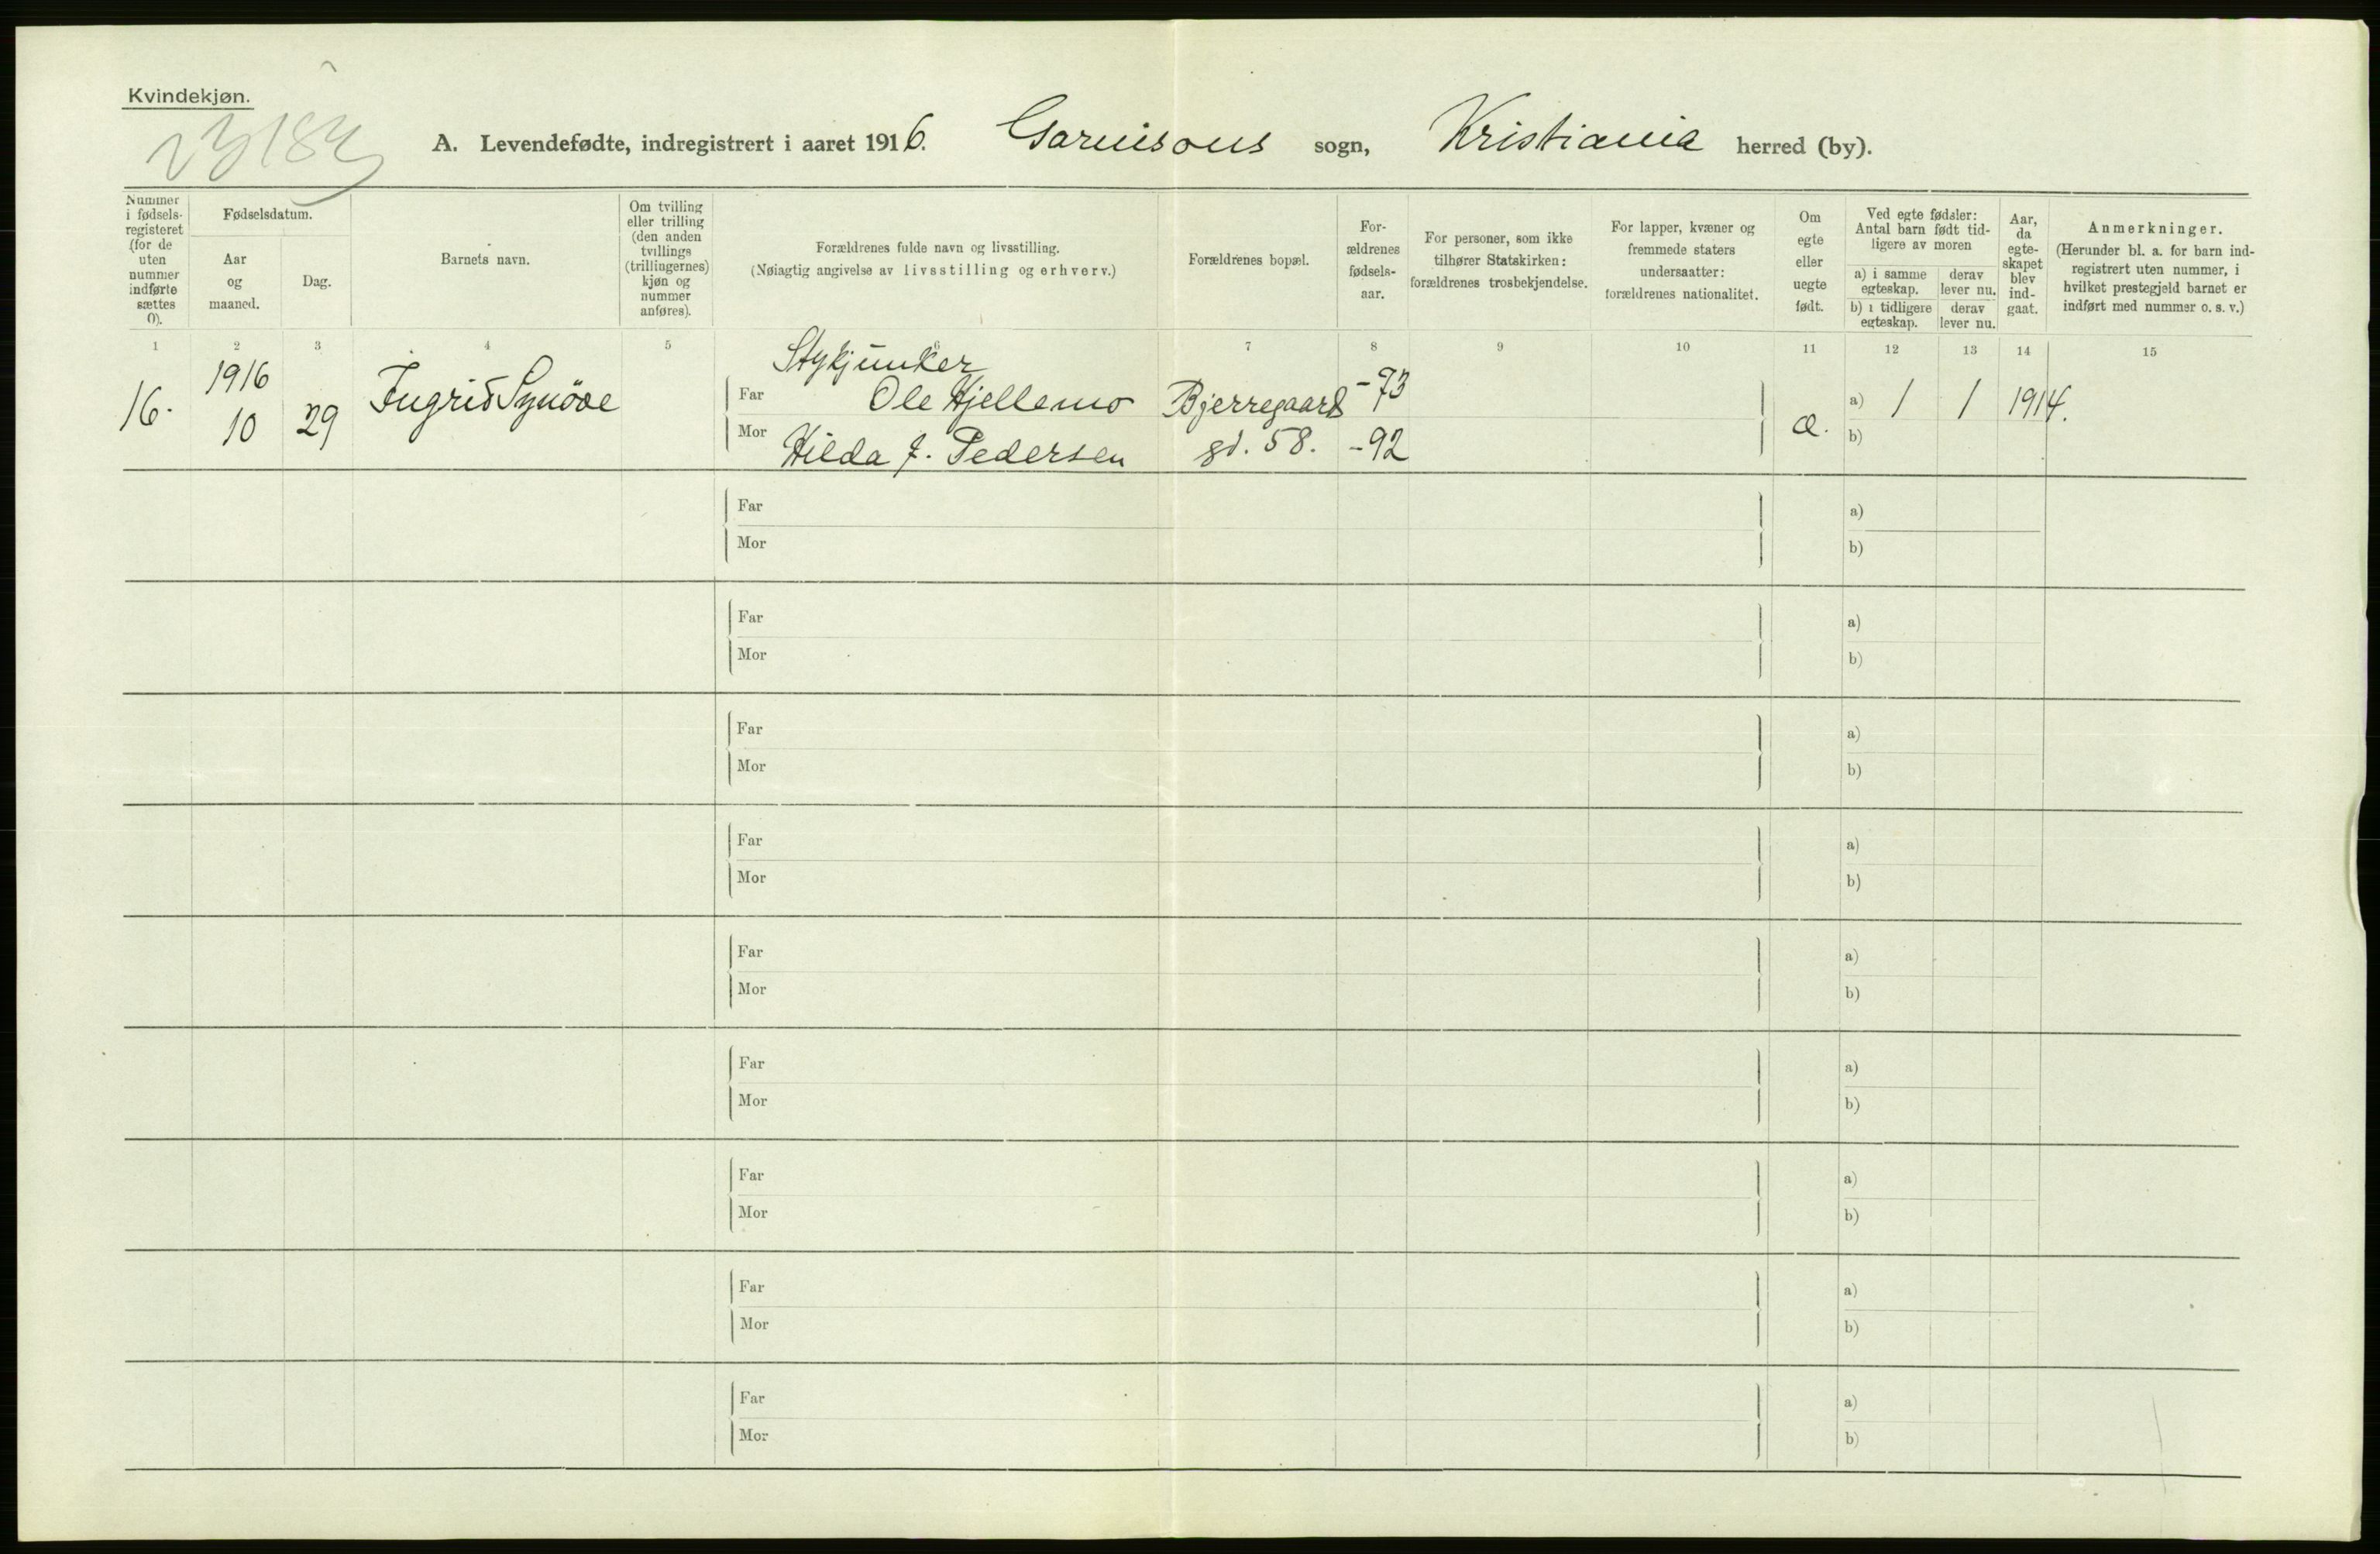 Kvindekjøn.
A. Levendefødte, indregistrert i aaret 1916. Garnisons sogn, Kristiania herred (by).
Nummer i fødselsregisteret (for de uten nummer indførte sættes 0).
Fødselsdatum.
Aar og maaned.
Dag.
Barnets navn.
Om tvilling eller trilling (den anden tvillings (trillingernes) kjøn og nummer anføres).
Forældrenes fulde navn og livsstilling.
(Nøiagtig angivelse av livsstilling og erhverv.)
Forældrenes bopæl.
For-
ældrenes
fødsels-
aar.
For personer, som ikke
tilhører Statskirken:
forældrenes trosbekjendelse.
For lapper, kvæner og
fremmede staters
undersaatter:
forældrenes nationalitet.
Om
egte
eller
uegte
født.
Ved egte fødsler:
Antal barn født tid-
ligere av moren
a) i samme egteskap.
derav lever nu.
b) i tidligere egteskap.
derav lever nu.
Aar, da egte-skapet blev ind-gaat.
Anmerkninger.
(Herunder bl. a. for barn ind-
registrert uten nummer, i
hvilket prestegjeld barnet er
indført med nummer o. s. v.)
1 2 3 4 5 6 7 8 9 10 11 12 13 14 15
Stykjunker
16. 1916 10 29 Ingrid Synöve Far Ole Hjellemo Bjerregaards -73 æ. a) 1 1 1914.
Mor Hilda J. Pedersen gd. 58. -92 b)
Far a)
Mor b)
Far a)
Mor b)
Far a)
Mor b)
Far a)
Mor b)
Far a)
Mor b)
Far a)
Mor b)
Far a)
Mor b)
Far a)
Mor b)
Far a)
Mor b)